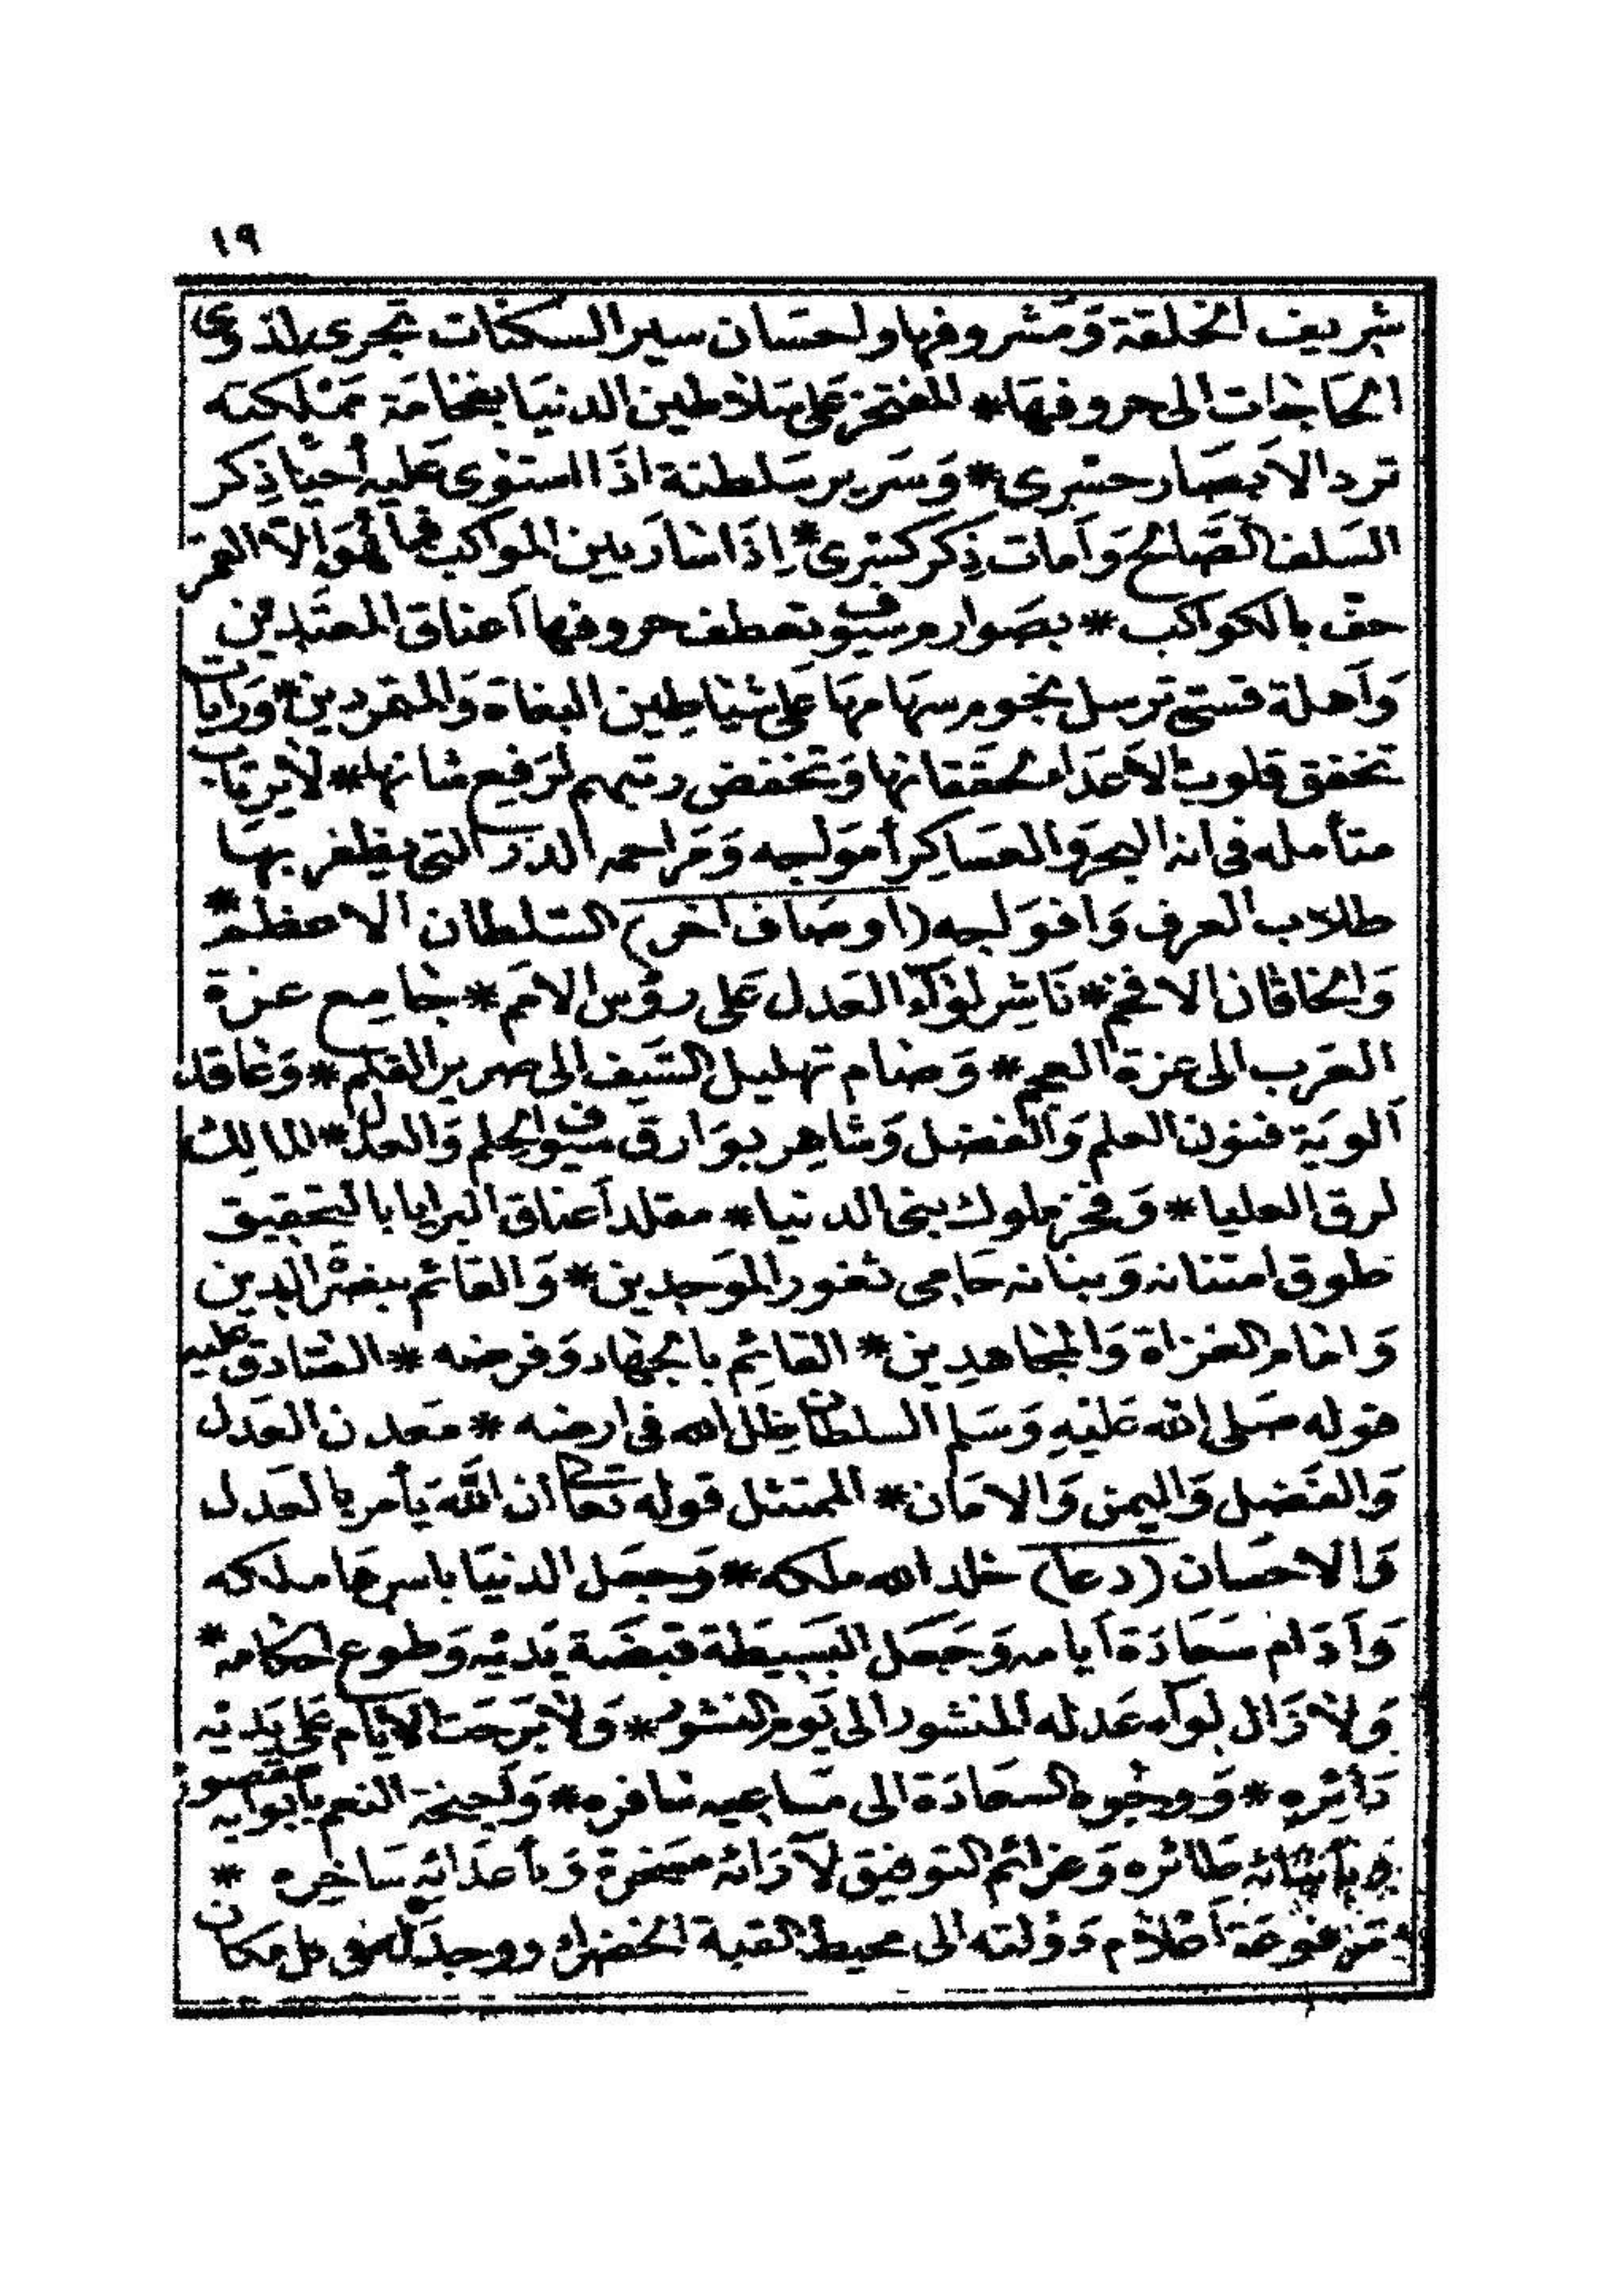 ١٩
شريف الخلقة وَمشروفها ولحسَان سير السكنات تجرى لذوى
الحَاجَات الى حروفهَا * المفتخر عَلى سَلاطين الدنيَا بفخامَة مَمْلكته
ترد الاَبصَار حسْرى * وَسَرير سَلطنة اذَا استوى عَليه أحيَا ذِكر
السَلف الصَّالح وَأمات ذِكر كسْرى * اِذَا سَارَ بين المواكب فمَا هُوَ اِلاّ القمَر
حف بالكواكب * بصَوارم سيُوف تعطف حروفها أعناق المعتَدِين
وَأهلة قسىّ ترسل نجوم سهَامهَا عَلى شيَاطِين البغاة وَالمتمردين * وَرَايَات
تخفق قلوبُ الاَعدَا لخفقانها وَتخفض رتبهم لرَفيع شانها * لاَيرتَاب
متأمله فى انه البحر وَالعسَاكِر أموَاجه وَمَراحمه الدرَر التى يظفر بهَا
طلاب العرف وَافوَاجه (اوصَاف اخر) السّلطان الاعظم *
وَالخاقان الافخم * نَاشِر لوَآء العَدل عَلى رؤس الامَم * جَامِع عزة
العَرب الى عزة العجم * وَضَام تهليل السَّيف الى صرير القلم * وَعَاقد
ألويَة فنون العلم وَالفضل وَشاهِر بوَارق سيُوف الحلم وَالعدل * المالِك
لرق العليا * وَفخر ملوك بنى الدنيا * مقلد أعناق البرايا بالتحقيق
طوق امتنانه وَبنانه حَامِى ثغور الموَحدين * وَالقائم بنصْر الدين
وَامَام الغزاة وَالمجَاهدِين * القائِم بالجهَاد وَفرضه * الصَّادق عليه
قوله صَلى الله عَليْهِ وَسَلم السلطان ظِل الله فى ارضه * مَعدن العَدل
وَالفَضل وَاليمن وَالامَان * الممتثل قوله تعَالى ان اللّه يَأمر بالعَدل
وَالاحسَان (دعا) خلد الله ملكه * وَجعَل الدنيَا باسرهَا ملكه
وَأدَام سَعَادَة أيامه وَجَعَل البَسِيطَة قبضَة يَديْه وَطوع احكامه *
وَلاَ زَال لوَآء عَدله المنشور الى يَوم النشور * وَلاَ بَرحَت الاَيَام عَلى يَديْه مقصورة
دَائِره * وَوجُوه السعَادَة الى مَسَاعِيه سَافره * وَأجنحة النعم بأبوابه
وبأفنائه طَائره وَعزائم التوفيق لآرَائه مسَخرة وَبأعدَائهِ سَاخِره *
مَرفوعَة أعْلاَم دَوْلته الى محيط القبة الخضراء ووجدَ له فى كل مكان